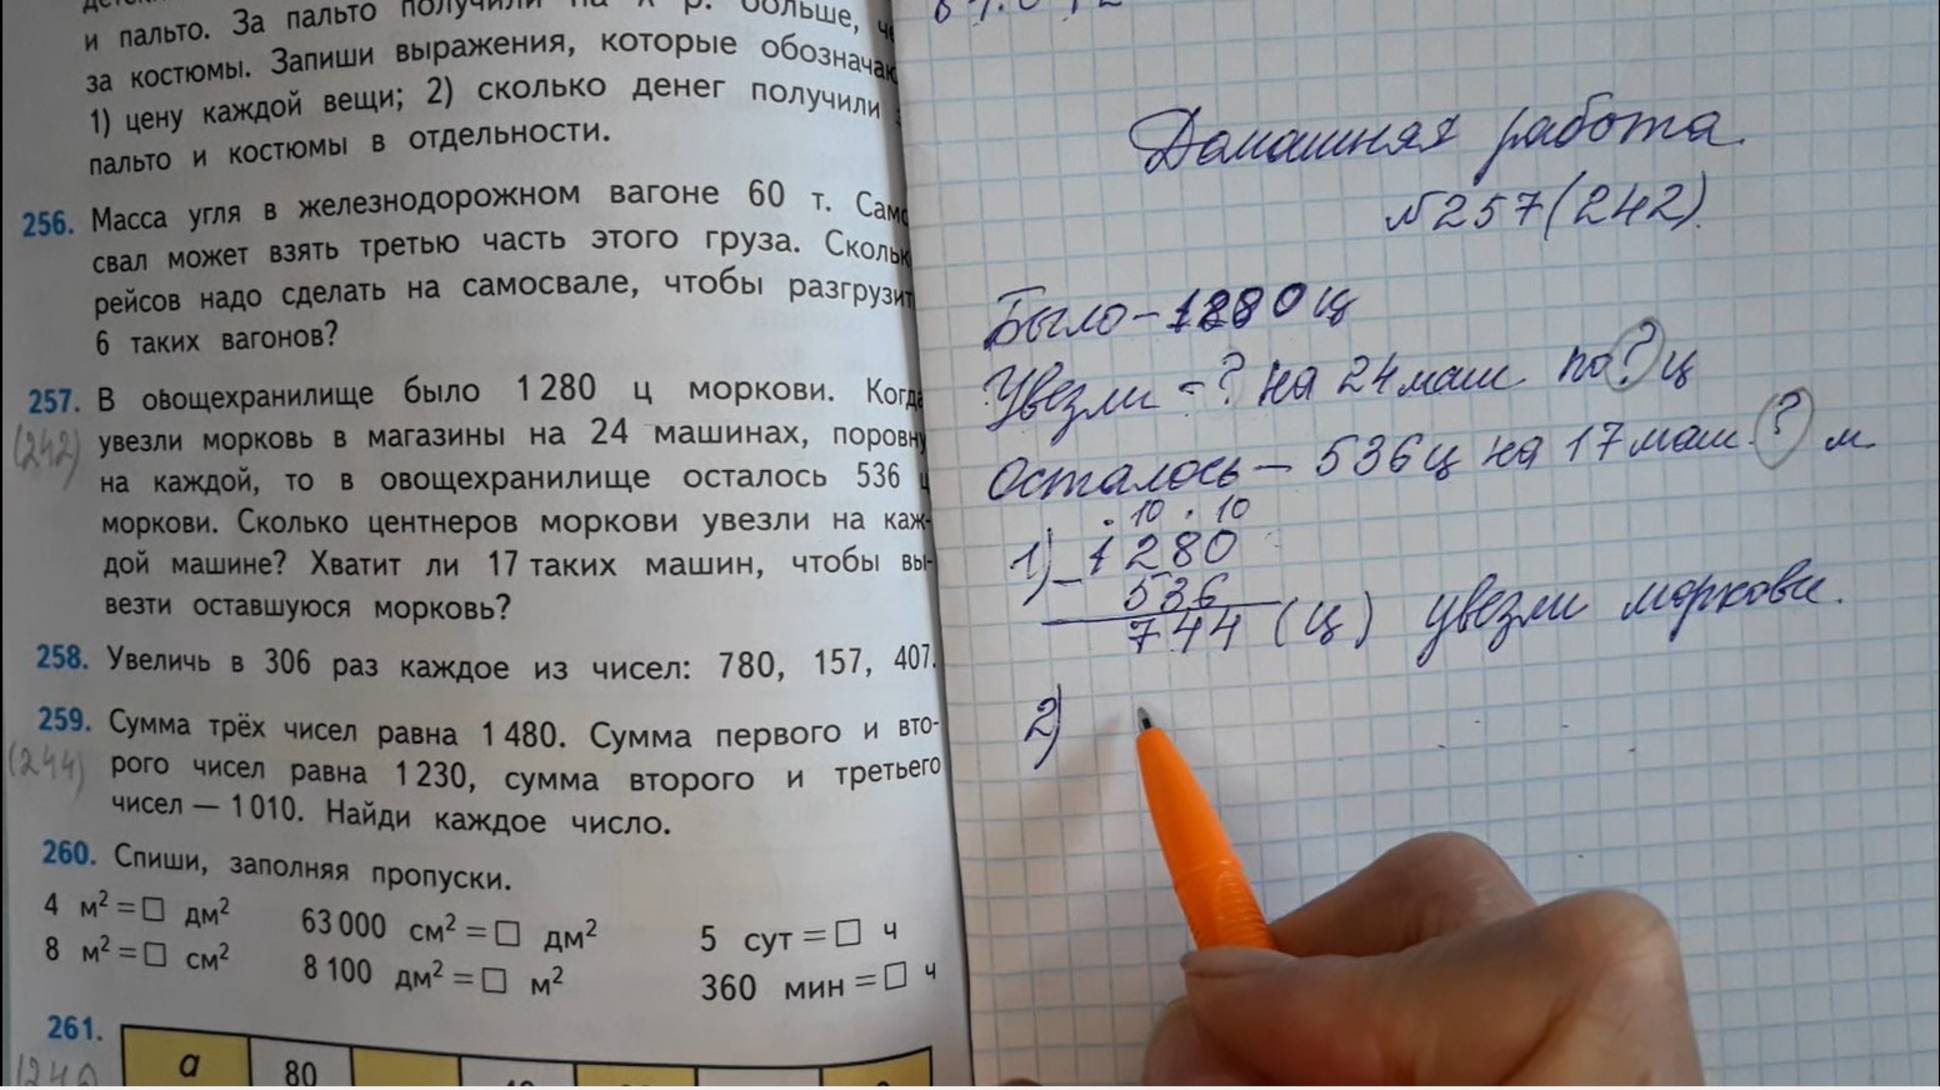 и пальто. За пальто получили на х р. больше,
за костюмы. Запиши выражения, которые
1) цену каждой вещи; 2) сколько денег получили
пальто и костюмы в отдельности.
256. Масса угля в железнодорожном вагоне 60 т. Само
свал может взять третью часть этого груза. Скольк
рейсов надо сделать на самосвале, чтобы разгрузит
6 таких вагонов?
257. В овощехранилище было 1 280 ц моркови. Когда
(242) увезли морковь в магазины на 24 машинах, поровну
на каждой, то в овощехранилище осталось 536 ц
моркови. Сколько центнеров моркови увезли на каж-
дой машине? Хватит ли 17 таких машин, чтобы вы-
везти оставшуюся морковь?
258. Увеличь в 306 раз каждое из чисел: 780, 157, 407.
259. Сумма трёх чисел равна 1 480. Сумма первого и вто-
(244) рого чисел равна 1 230, сумма второго и третьего
чисел — 1 010. Найди каждое число.
260. Спиши, заполняя пропуски.
4 м² = □ дм² 63 000 см² = □ дм² 5 сут = □ ч
8 м² = □ см² 8 100 дм² = □ м² 360 мин = □ ч
261.
a 80
Домашняя работа.
№257(242).
Было – 1280 ц
Увезли – ? на 24 маш по ? ц
Осталось – 536 ц на 17 маш. ? м.
. 10 . 10
1) – 1280
536
744 (ц) увезли моркови.
2)